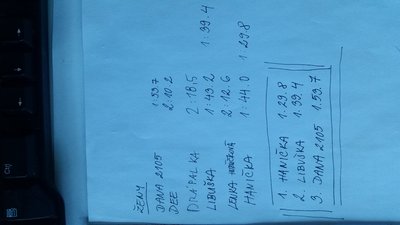 ŽENY
DANA 2105 1:53.7
DEE 2:10.2
DRAPALKA 2:18,5
LIBUŠKA 1:43.2 1:39.4
LENKA 2:12.6
HANIČKA 1:44.0 1:29.8
1. HANIČKA 1.29.8
2. LIBUŠKA 1:39.4
3. DANA 2105 1.53.7